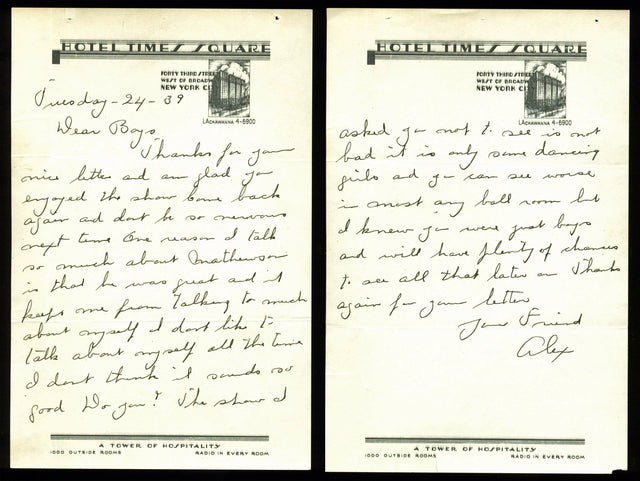 HOTEL TIMES SQUARE
FORTY THIRD STREET
WEST OF BROADWAY
NEW YORK CITY
LACKAWANNA 4-6900
Tuesday-24-39
Dear Boys
Thanks for your
nice letter and am glad you
enjoyed the show Come back
again ad dont be so nervous
next time One reason I talk
so much about Mathewson
is that he was great ad it
keeps me from Talking to much
about myself I dont like to
talk about myself all the time
I dont think it sounds so
good Do you? The show I
A TOWER OF HOSPITALITY
1000 OUTSIDE ROOMS
RADIO IN EVERY ROOM
HOTEL TIMES SQUARE
FORTY THIRD STREET
WEST OF BROADWAY
NEW YORK CITY
LACKAWANNA 4-6900
asked you not to see is not
bad it is only some dancing
girls ad you can see worse
in most any ball room but
I knew you were just boys
and will have plenty of chances
to see all that later on Thanks
again for your letter
Your Friend
Alex
A TOWER OF HOSPITALITY
1000 OUTSIDE ROOMS
RADIO IN EVERY ROOM